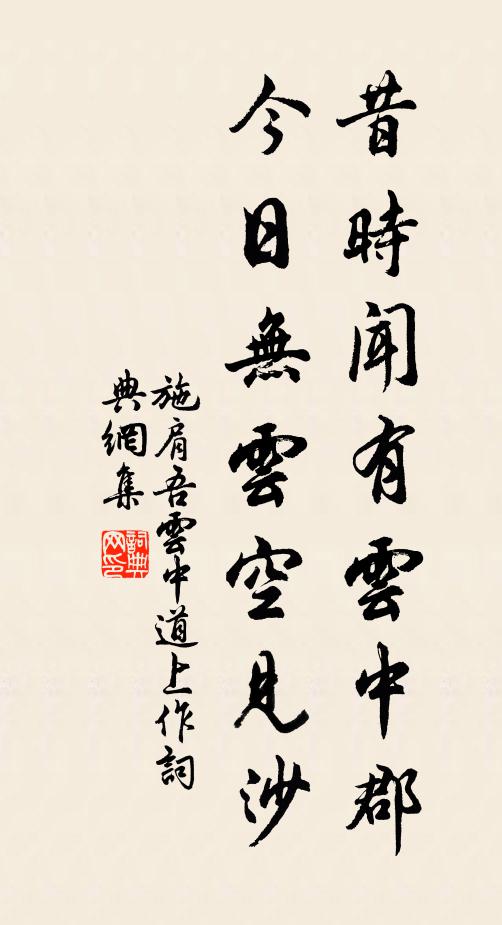 昔時聞有雲中郡
今日無雲空見沙
施肩吾雲中道上作詞
典網集
詞典网印